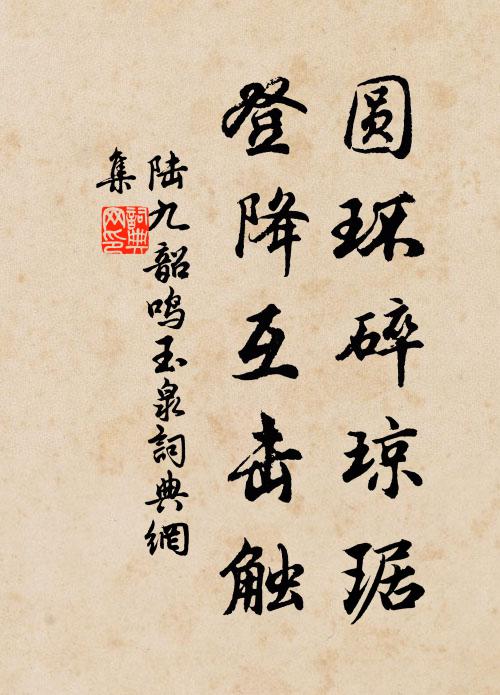 圆环碎琼琚
登降互击触
陆九韶鸣玉泉詞典網
集
詞典
网印